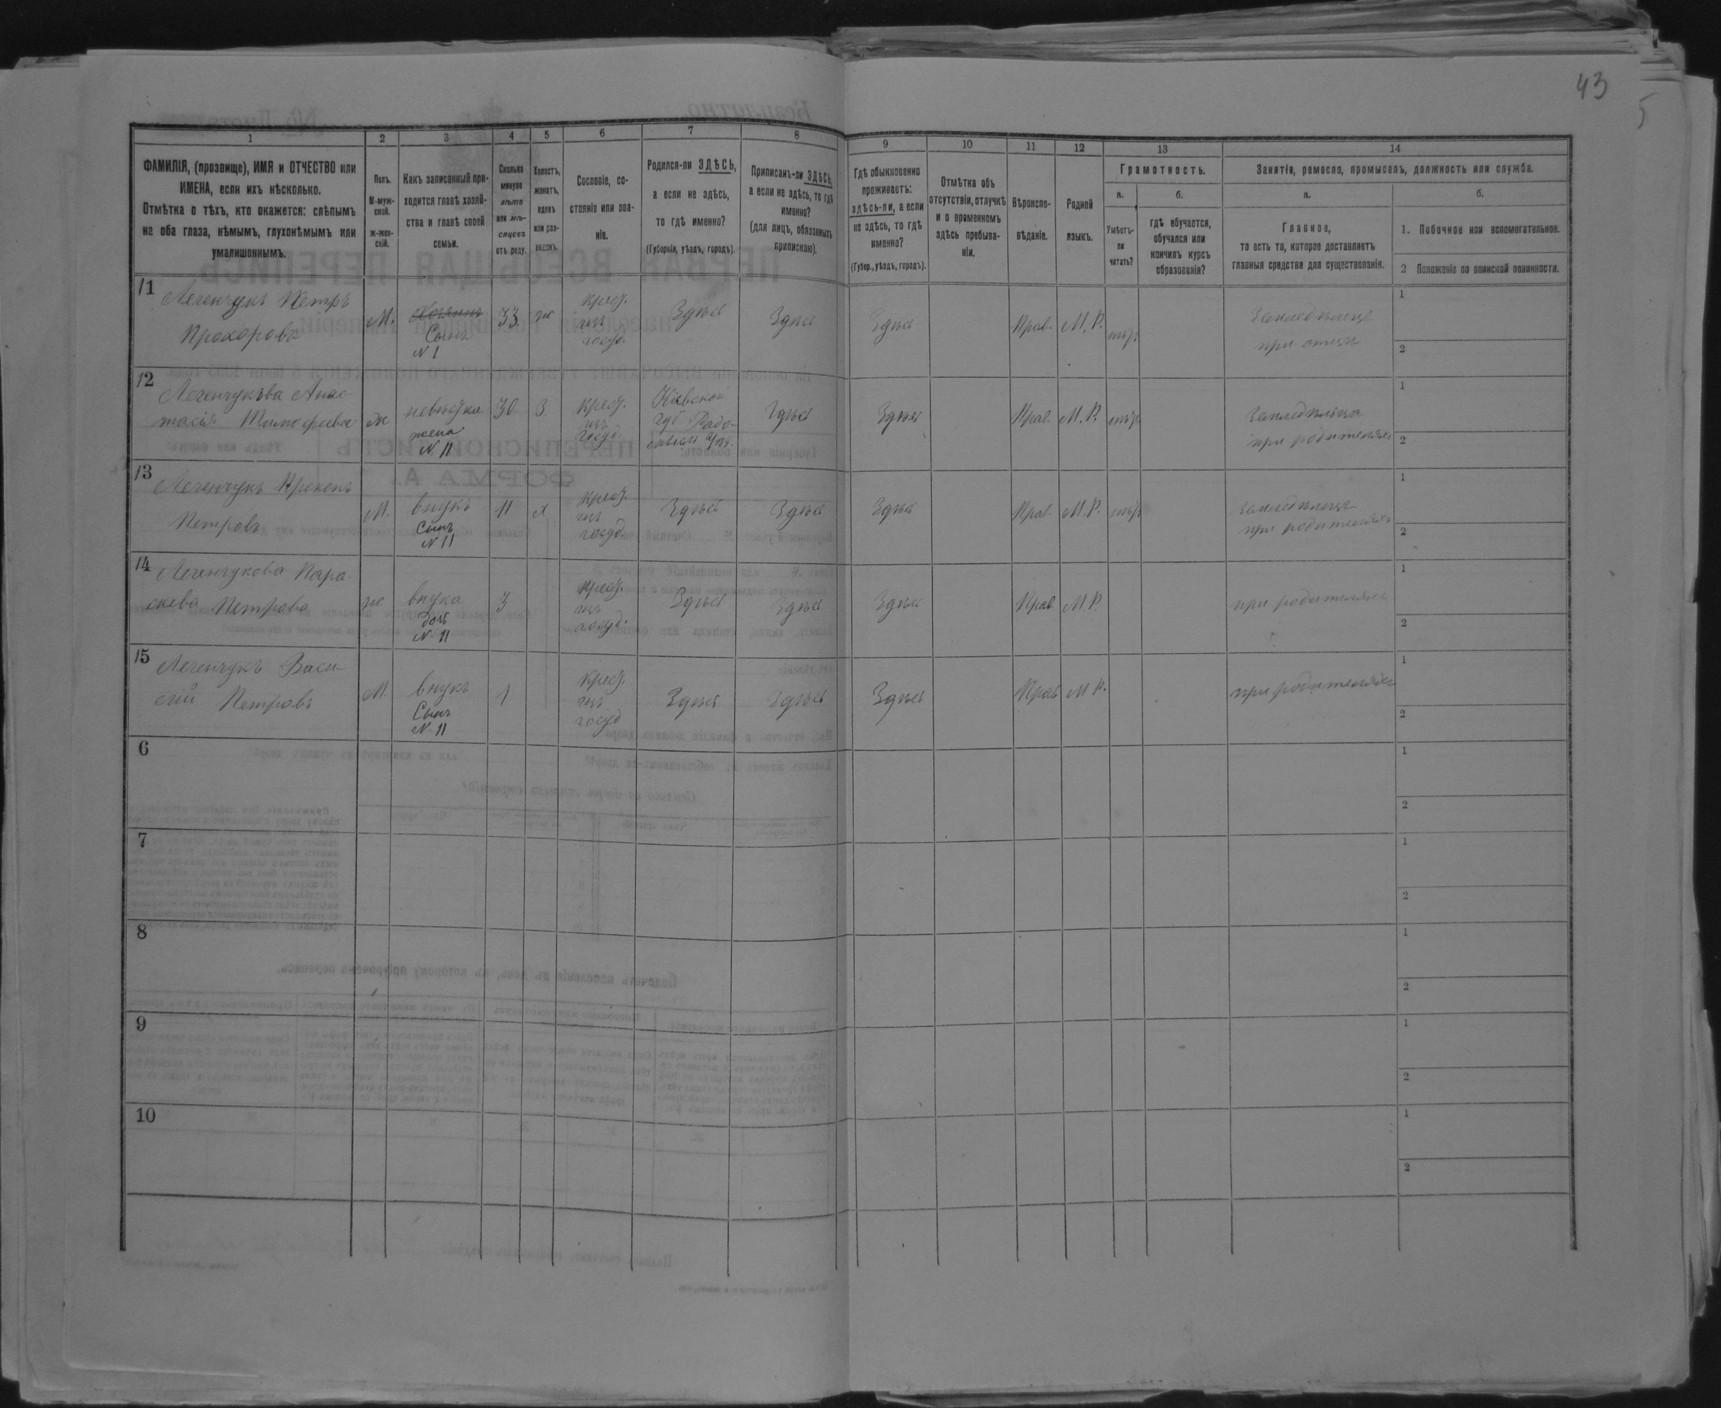 43
5
1
2
3
4
5
6
7
8
9
10
11
12
13
14
ФАМИЛІЯ, (прозвище), ИМЯ и ОТЧЕСТВО или
ИМЕНА, если ихъ нѣсколько.
Отмѣтка о тѣхъ, кто окажется: слѣпымъ
на оба глаза, нѣмымъ, глухонѣмымъ или
умалишоннымъ.
Полъ.
М-муж-
ской.
ж-жен-
скій.
Какъ записанный при-
ходится главѣ хозяй-
ства и главѣ своей
семьи.
Сколько
минуло
лѣтъ
или мѣ-
сяцевъ
отъ роду.
Холостъ,
женатъ,
вдовъ
или раз-
веденъ.
Сословіе, со-
стояніе или зва-
ніе.
Родился-ли ЗДѢСЬ,
а если не здѣсь,
то гдѣ именно?
(Губернія, уѣздъ, городъ).
Приписанъ-ли ЗДѢСЬ,
а если не здѣсь, то гдѣ
именно?
(для лицъ, обязанныхъ
припискою).
Гдѣ обыкновенно
проживаетъ:
здѣсь-ли, а если
не здѣсь, то гдѣ
именно?
(Губер., уѣздъ, городъ).
Отмѣтка объ
отсутствіи, отлучкѣ
и о временномъ
здѣсь пребыва-
ніи.
Вѣроиспо-
вѣданіе.
Родной
языкъ.
Грамотность.
а.
Умѣетъ-
ли
читать?
б.
гдѣ обучается,
обучался или
кончилъ курсъ
образованія?
Занятіе, ремесло, промыселъ, должность или служба.
а.
Главное,
то есть то, которое доставляетъ
главныя средства для существованія.
б.
1. Побочное или вспомогательное.
2 Положеніе по воинской повинности.
11
Легенчукъ Петръ
Прохоровъ
М.
Сынъ
N 1
33
ж
крест.
изъ
госуд.
Здѣсь
Здѣсь
Здѣсь
Прав.
М. Р.
Земледѣлецъ
при отцѣ
1
2
12
Легенчукова Анас-
тасія Тимофеева
ж
невѣстка
жена
N 11
30
З.
крест.
изъ
госуд.
Кіевской
губ. Радо-
Здѣсь
Здѣсь
Прав.
М. Р.
при родителяхъ
1
2
13
Легенчукъ Прокопъ
Петровъ
М.
внукъ
Сынъ
N 11
11
х
крест.
изъ
госуд.
Здѣсь
Здѣсь
Здѣсь
Прав.
М. Р.
Земледѣлецъ
при родителяхъ
1
2
14
Легенчукова Пара-
скева Петрова
ж
внука
дочь
N 11
3
крест.
изъ
госуд.
Здѣсь
Здѣсь
Здѣсь
Прав
М Р.
при родителяхъ
1
2
15
Легенчукъ Васи-
лій Петровъ
М.
внукъ
Сынъ
N 11
1
крест.
изъ
госуд
Здѣсь
Здѣсь
Здѣсь
Прав
М Р.
при родителяхъ
1
2
6
1
2
7
1
2
8
1
2
9
1
2
10
1
2